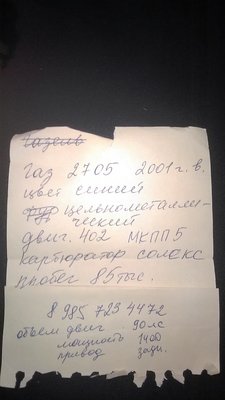 Газель
Газ 2705 2001 г.в.
цвет синий
цельнометалли-
ческий
двиг. 402 МКПП5
картюратор солекс
пробег 85 тыс.
8 985 723 4472
объем двиг. 90 лс
мощность 1400
привод задн.